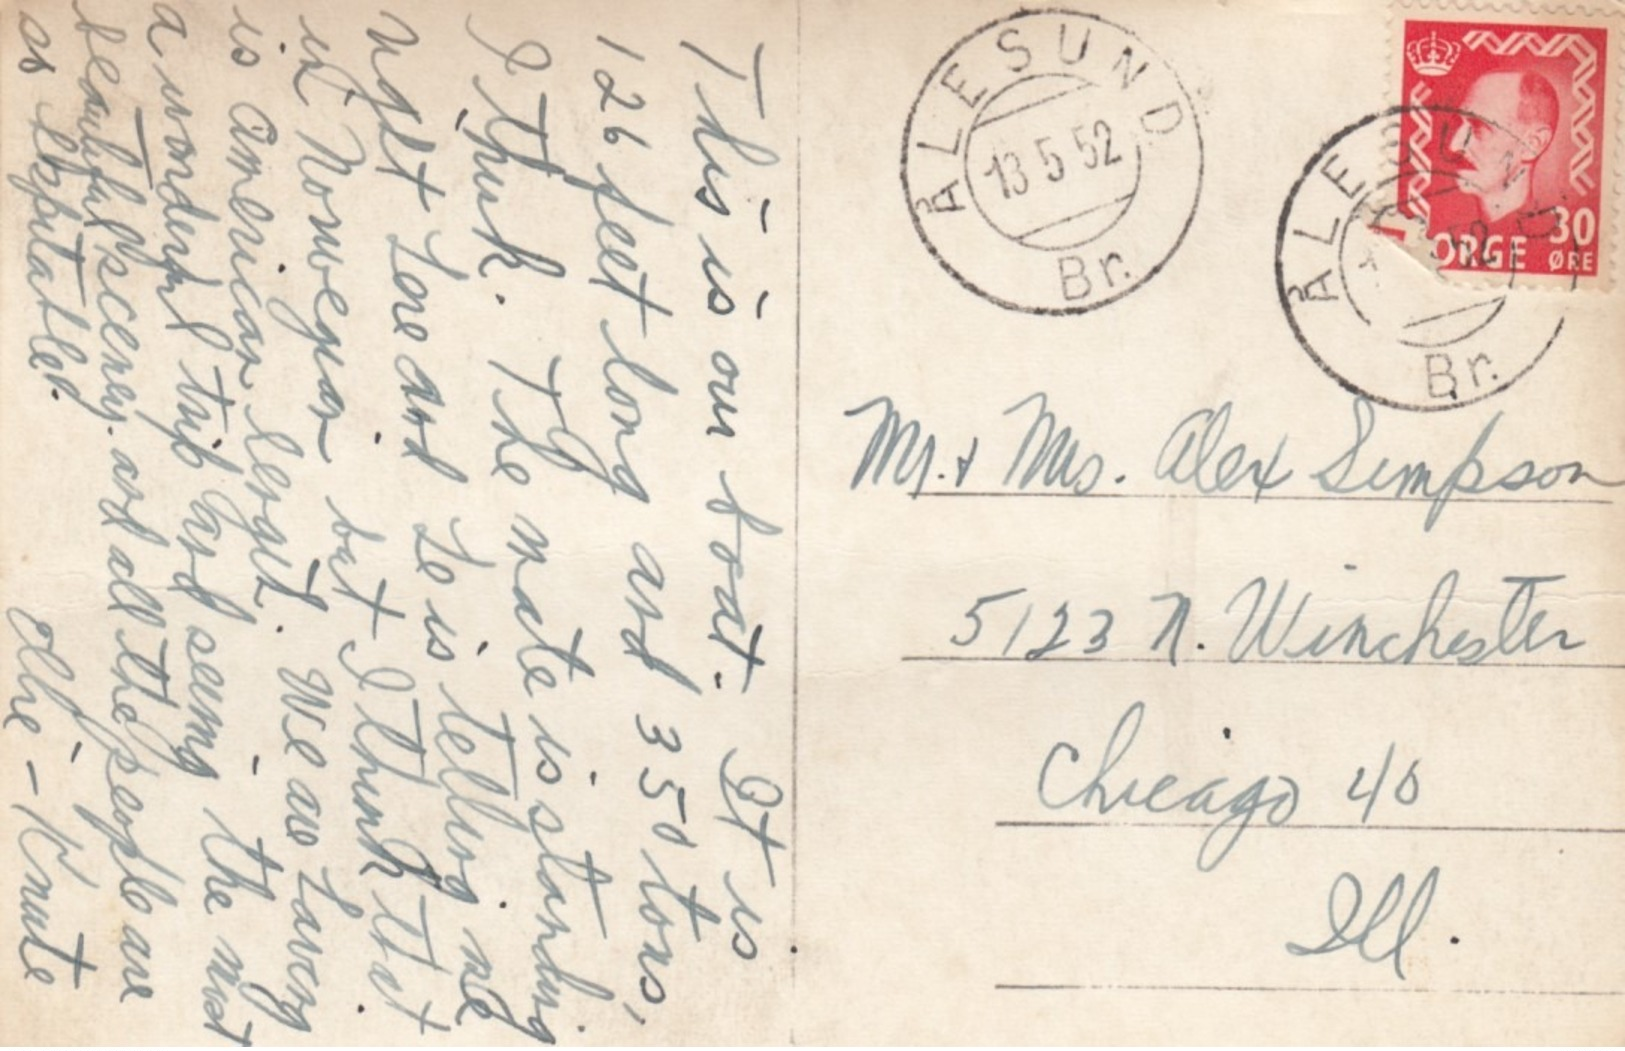 This is our boat. It is
126 feet long and 350 tons,
I think. The mate is standing
right here and he is telling me
in Norwegian but I think that
is American lengt. We are having
a wonderful trip and seeing the most
beautiful scenery. and all the people are
so
Olhe - Knute
ÅLESUND
13 5 52
Br.
ÅLESUND
52
Br.
ORGE
30
ØRE
Mr. & Mrs. Alex Simpson
5123 N. Winchester
Chicago 40
Ill.